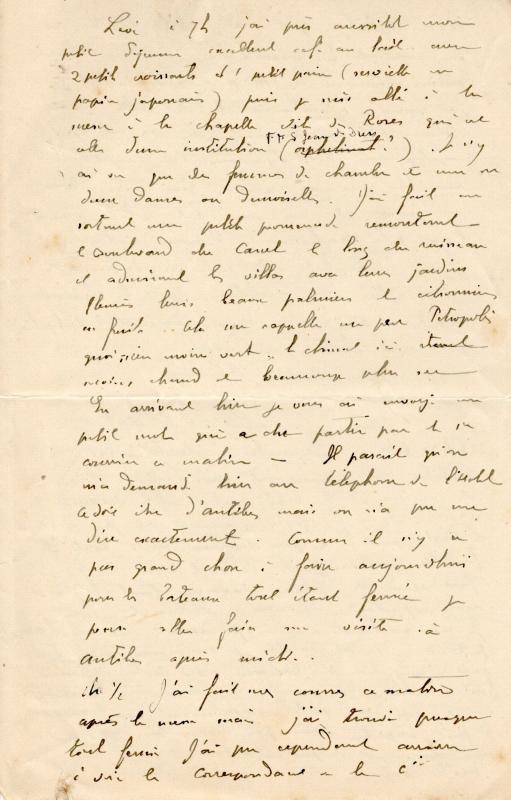 Levé à 7h j'ai pris aussitôt mon
petit déjeuner excellent café au lait avec
2 petits croissants et 1 petit pain (serviette en
papier japonais) puis je suis allé à la
messe à la chapelle dite des Roses qui est
celle d'une institution (orphelinat ?) F.F. S Jean de Dieu . Je n'y
ai vu que des femmes de chambre et une ou
deux dames ou demoiselles. J'ai fait en
sortant une petite promenade remontant
le Boulevard du Canet le long du ruisseau
et admirant les villas avec leurs jardins
fleuris leurs beaux palmiers et citronniers
en fruits .. Cela me rappelle un peu Petropolis
quoique bien moins vert, le climat ici étant
moins chaud et beaucoup plus sec
En arrivant hier je vous ai envoyé un
petit mot qui a dû partir par le 1er
courrier ce matin — Il paraît qu'on
m'a demandé hier au téléphone de l'hôtel
ce doit être d'antibes mais on n'a pu me
dire exactement . Comme il n'y a
pas grand chose à faire aujourd'hui
pour les bateaux tout étant fermé je
pense aller faire une visite à
antibes après midi ..
11h 1/2 J'ai fait mes courses ce matin
après la messe mais j'ai trouvé presque
tout fermé J'ai pu cependant arriver
à voir le correspondant de la Cie